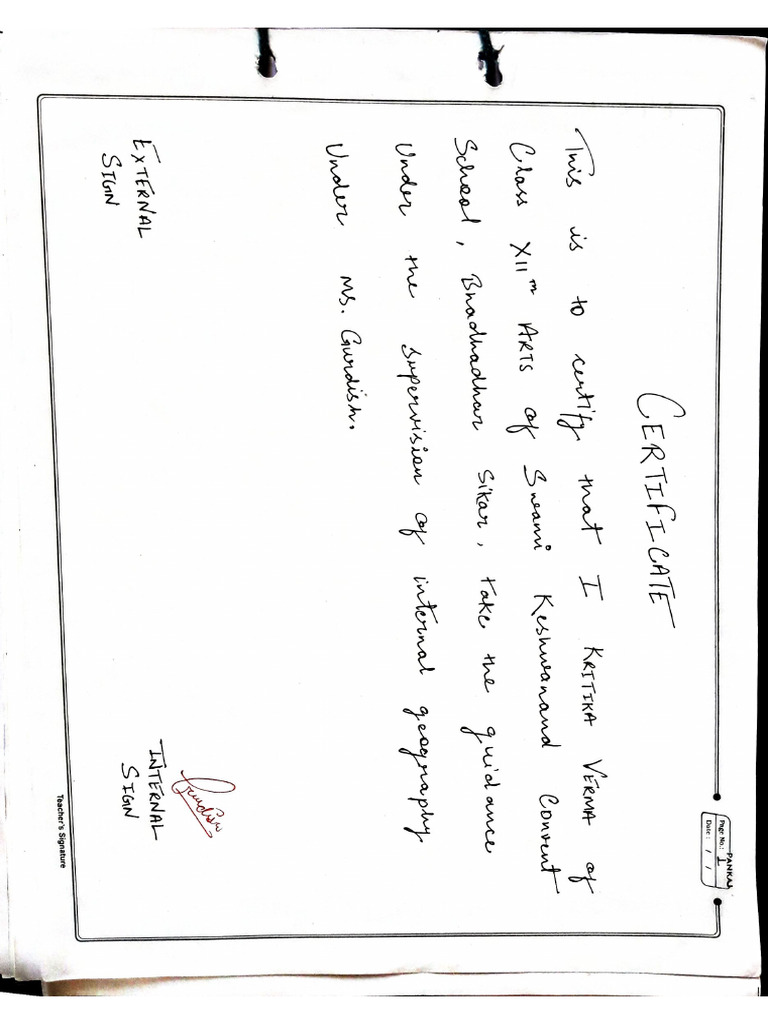 PANKAJ
Page No.: 1
Date: / /
CERTIFICATE
This is to certify that I KRITIKA VERMA of
Class XIIth ARTS of Swami Keshwanand Convent
School, Bhadhadhar Sikar, take the guidance
Under the supervision of internal geography
Under Ms. Gurdish.
EXTERNAL
SIGN
INTERNAL
SIGN
Teacher's Signature